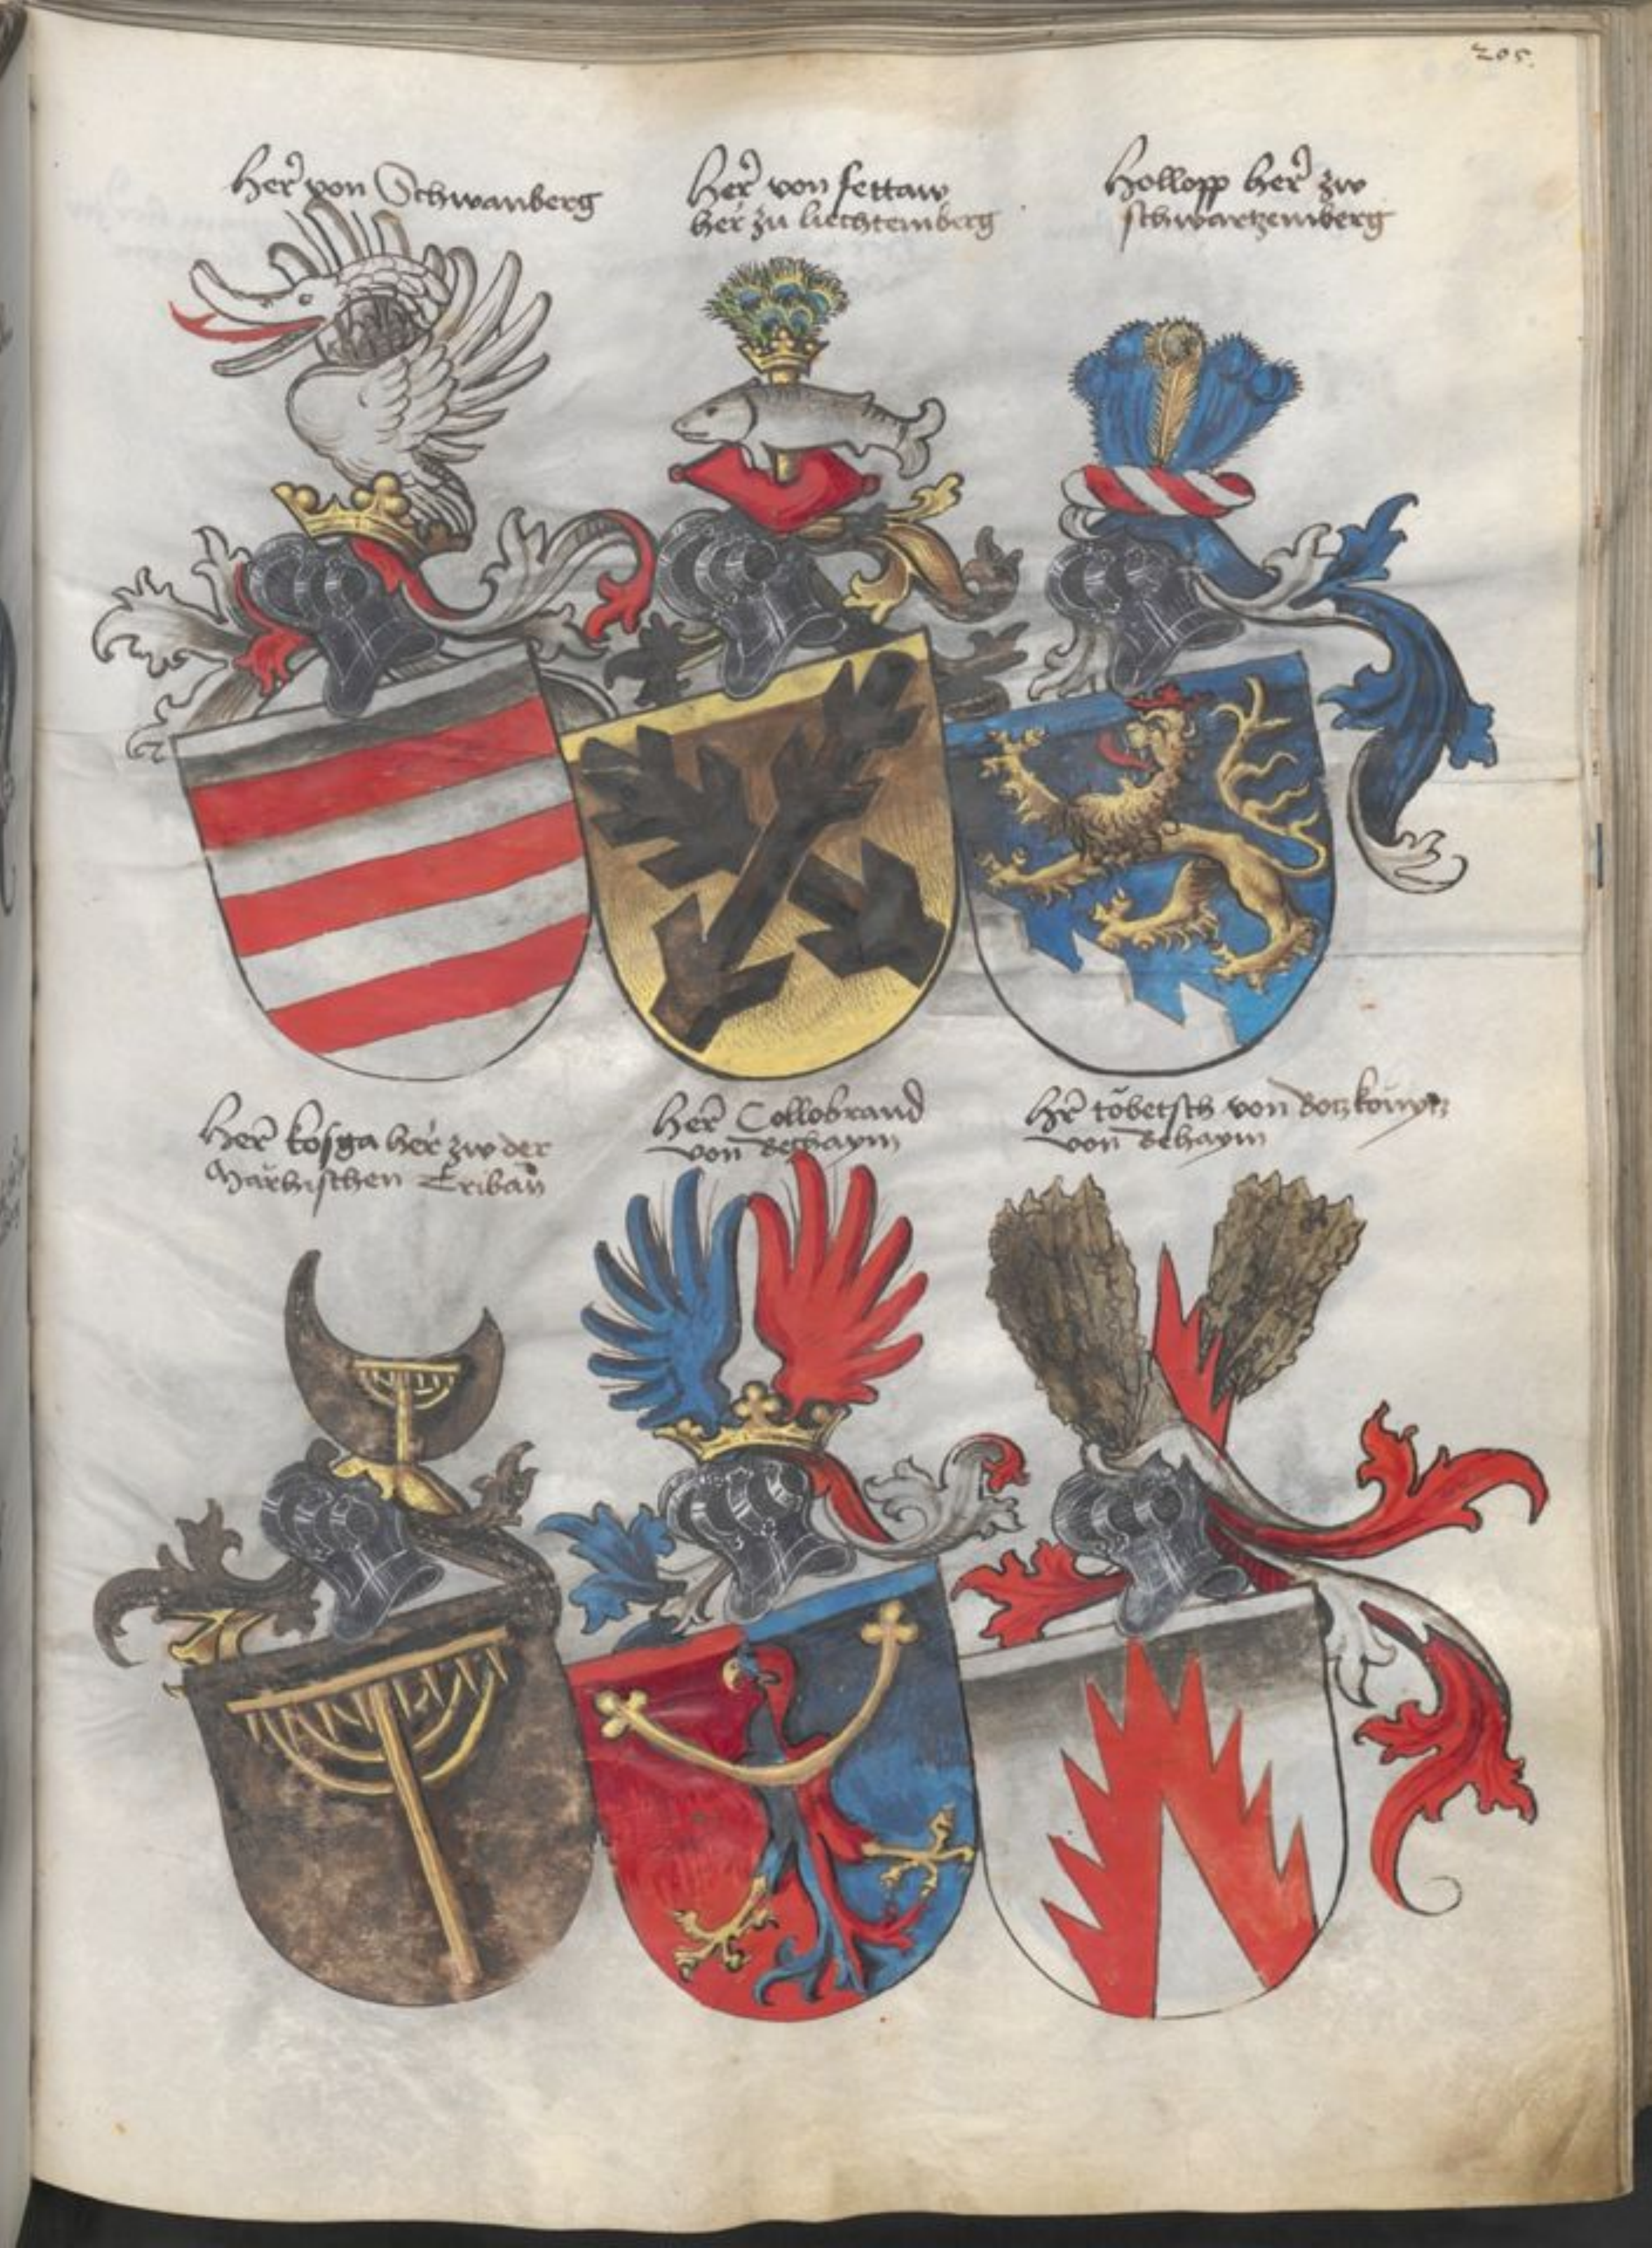 205.
Her von Schwanberg
Her von fettaw
her zu liechtemberg
Hollopp her zw
schwartzemberg
Her kosga her zw der
Märhischen Tribaw
Her Collobrand
von Behaym
Hr töbetsch von
von Behaym